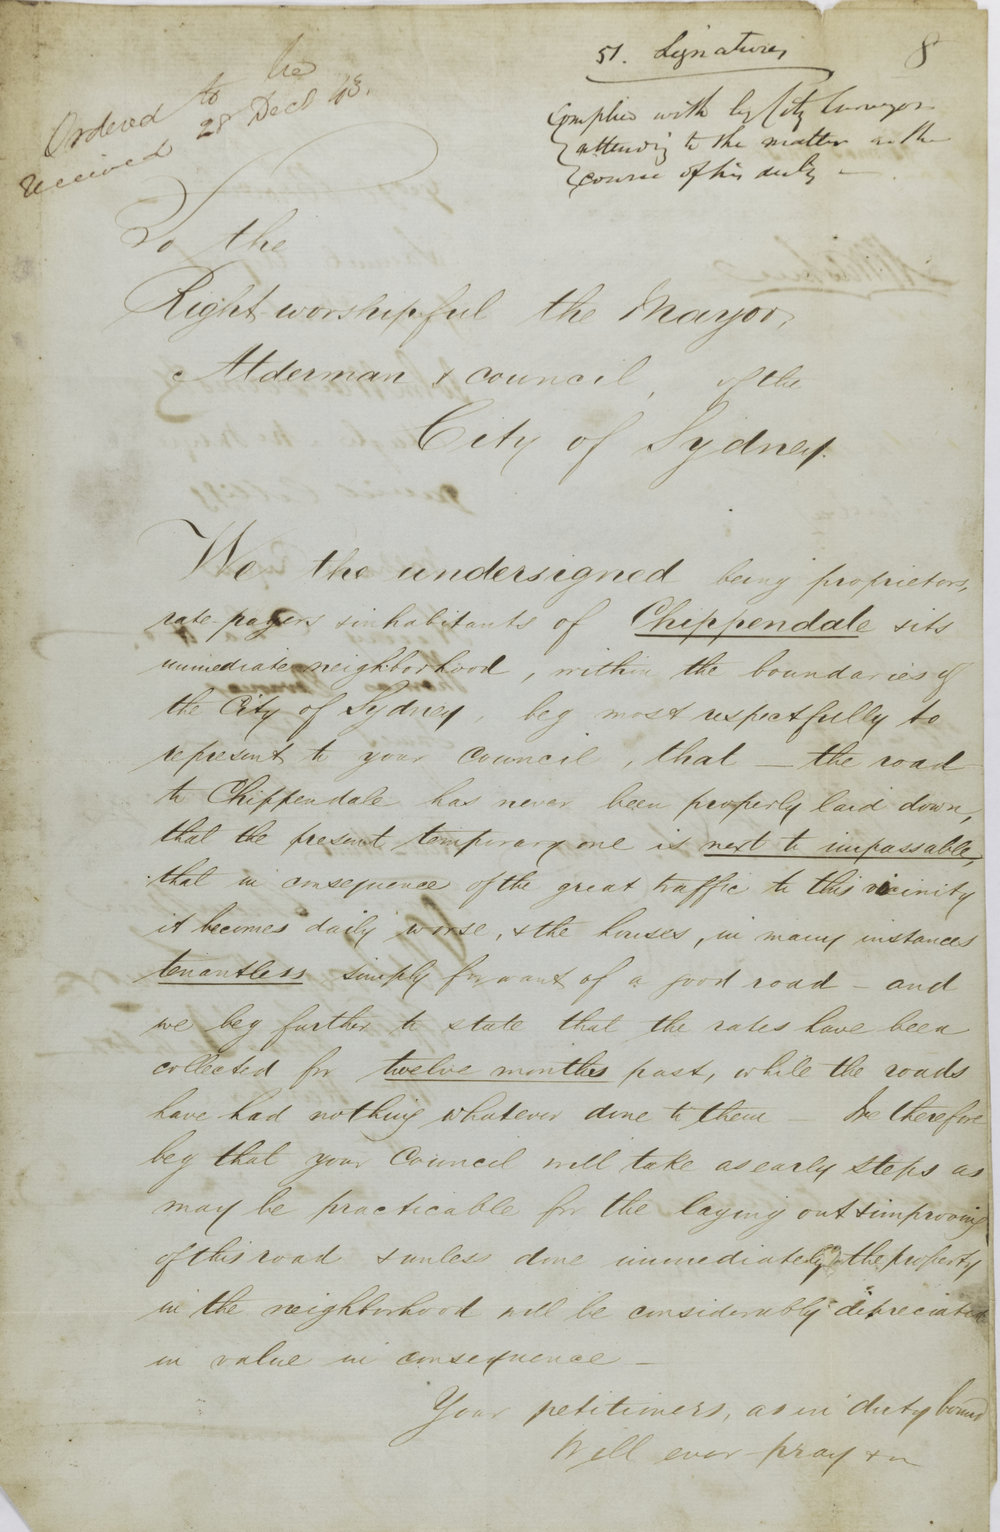 51. Signatures
8
Ordered to be
received 28 Decr 43.
Complied with by City Surveyor
attending to the matter in the
course of his duty —
To the
Right worshipful the Mayor,
Alderman & council, of the
City of Sydney.
We the undersigned being proprietors,
rate-payers & inhabitants of Chippendale & its
immediate neighborhood, within the boundaries of
the City of Sydney, beg most respectfully to
represent to your council, that — the road
to Chippendale has never been properly laid down,
that the present temporary one is next to impassable,
that in consequence of the great traffic to this vicinity
it becomes daily worse, & the houses, in many instances
tenantless simply for want of a good road — and
we beg further to state that the rates have been
collected for twelve months past, while the roads
have had nothing whatever done to them — We therefore
beg that your Council will take as early steps as
may be practicable for the laying out & improving
of this road & unless done immediately the property
in the neighborhood will be considerably depreciated
in value in consequence —
Your petitioners, as in duty bound
Will ever pray &c